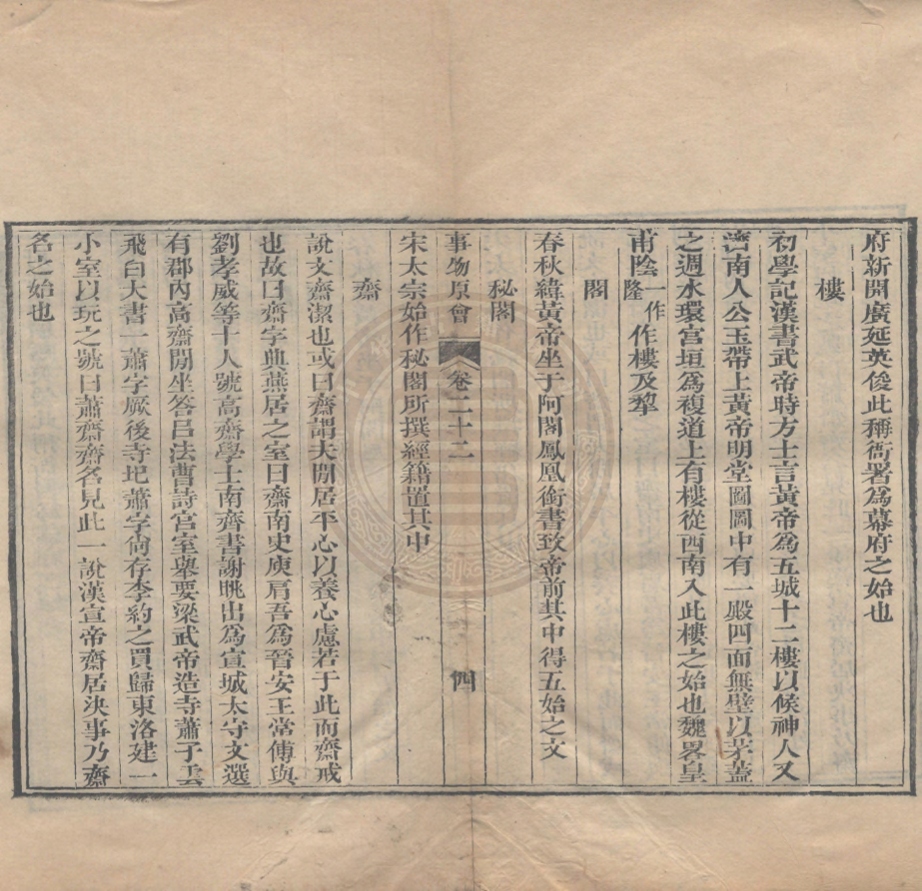 府新開廣延英俊此稱衙署為幕府之始也
樓
初學記漢書武帝時方士言黃帝為五城十二樓以候神人又
濟南人公玉帶上黃帝明堂圖圖中有一殿四面無壁以茅蓋
之週水環宮垣為複道上有樓從西南入此樓之始也魏畧皇
甫陰一作隆作樓及犂
閣
春秋緯黃帝坐于阿閣鳳凰銜書致帝前其中得五始之文
秘閣
事物原會 卷二十二 四
宋太宗始作秘閣所撰經籍置其中
齋
說文齋潔也或曰齋謂夫閒居平心以養心慮若于此而齋戒
也故曰齋字典燕居之室曰齋南史庾肩吾為晉安王常傅與
劉孝威等十人號高齋學士南齊書謝朓出為宣城太守文選
有郡內高齋閒坐答呂法曹詩宮室舉要梁武帝造寺蕭子雲
飛白大書一蕭字厥後寺圯蕭字尙存李約之買歸東洛建一
小室以玩之號曰蕭齋齋名見此一說漢宣帝齋居決事乃齋
名之始也